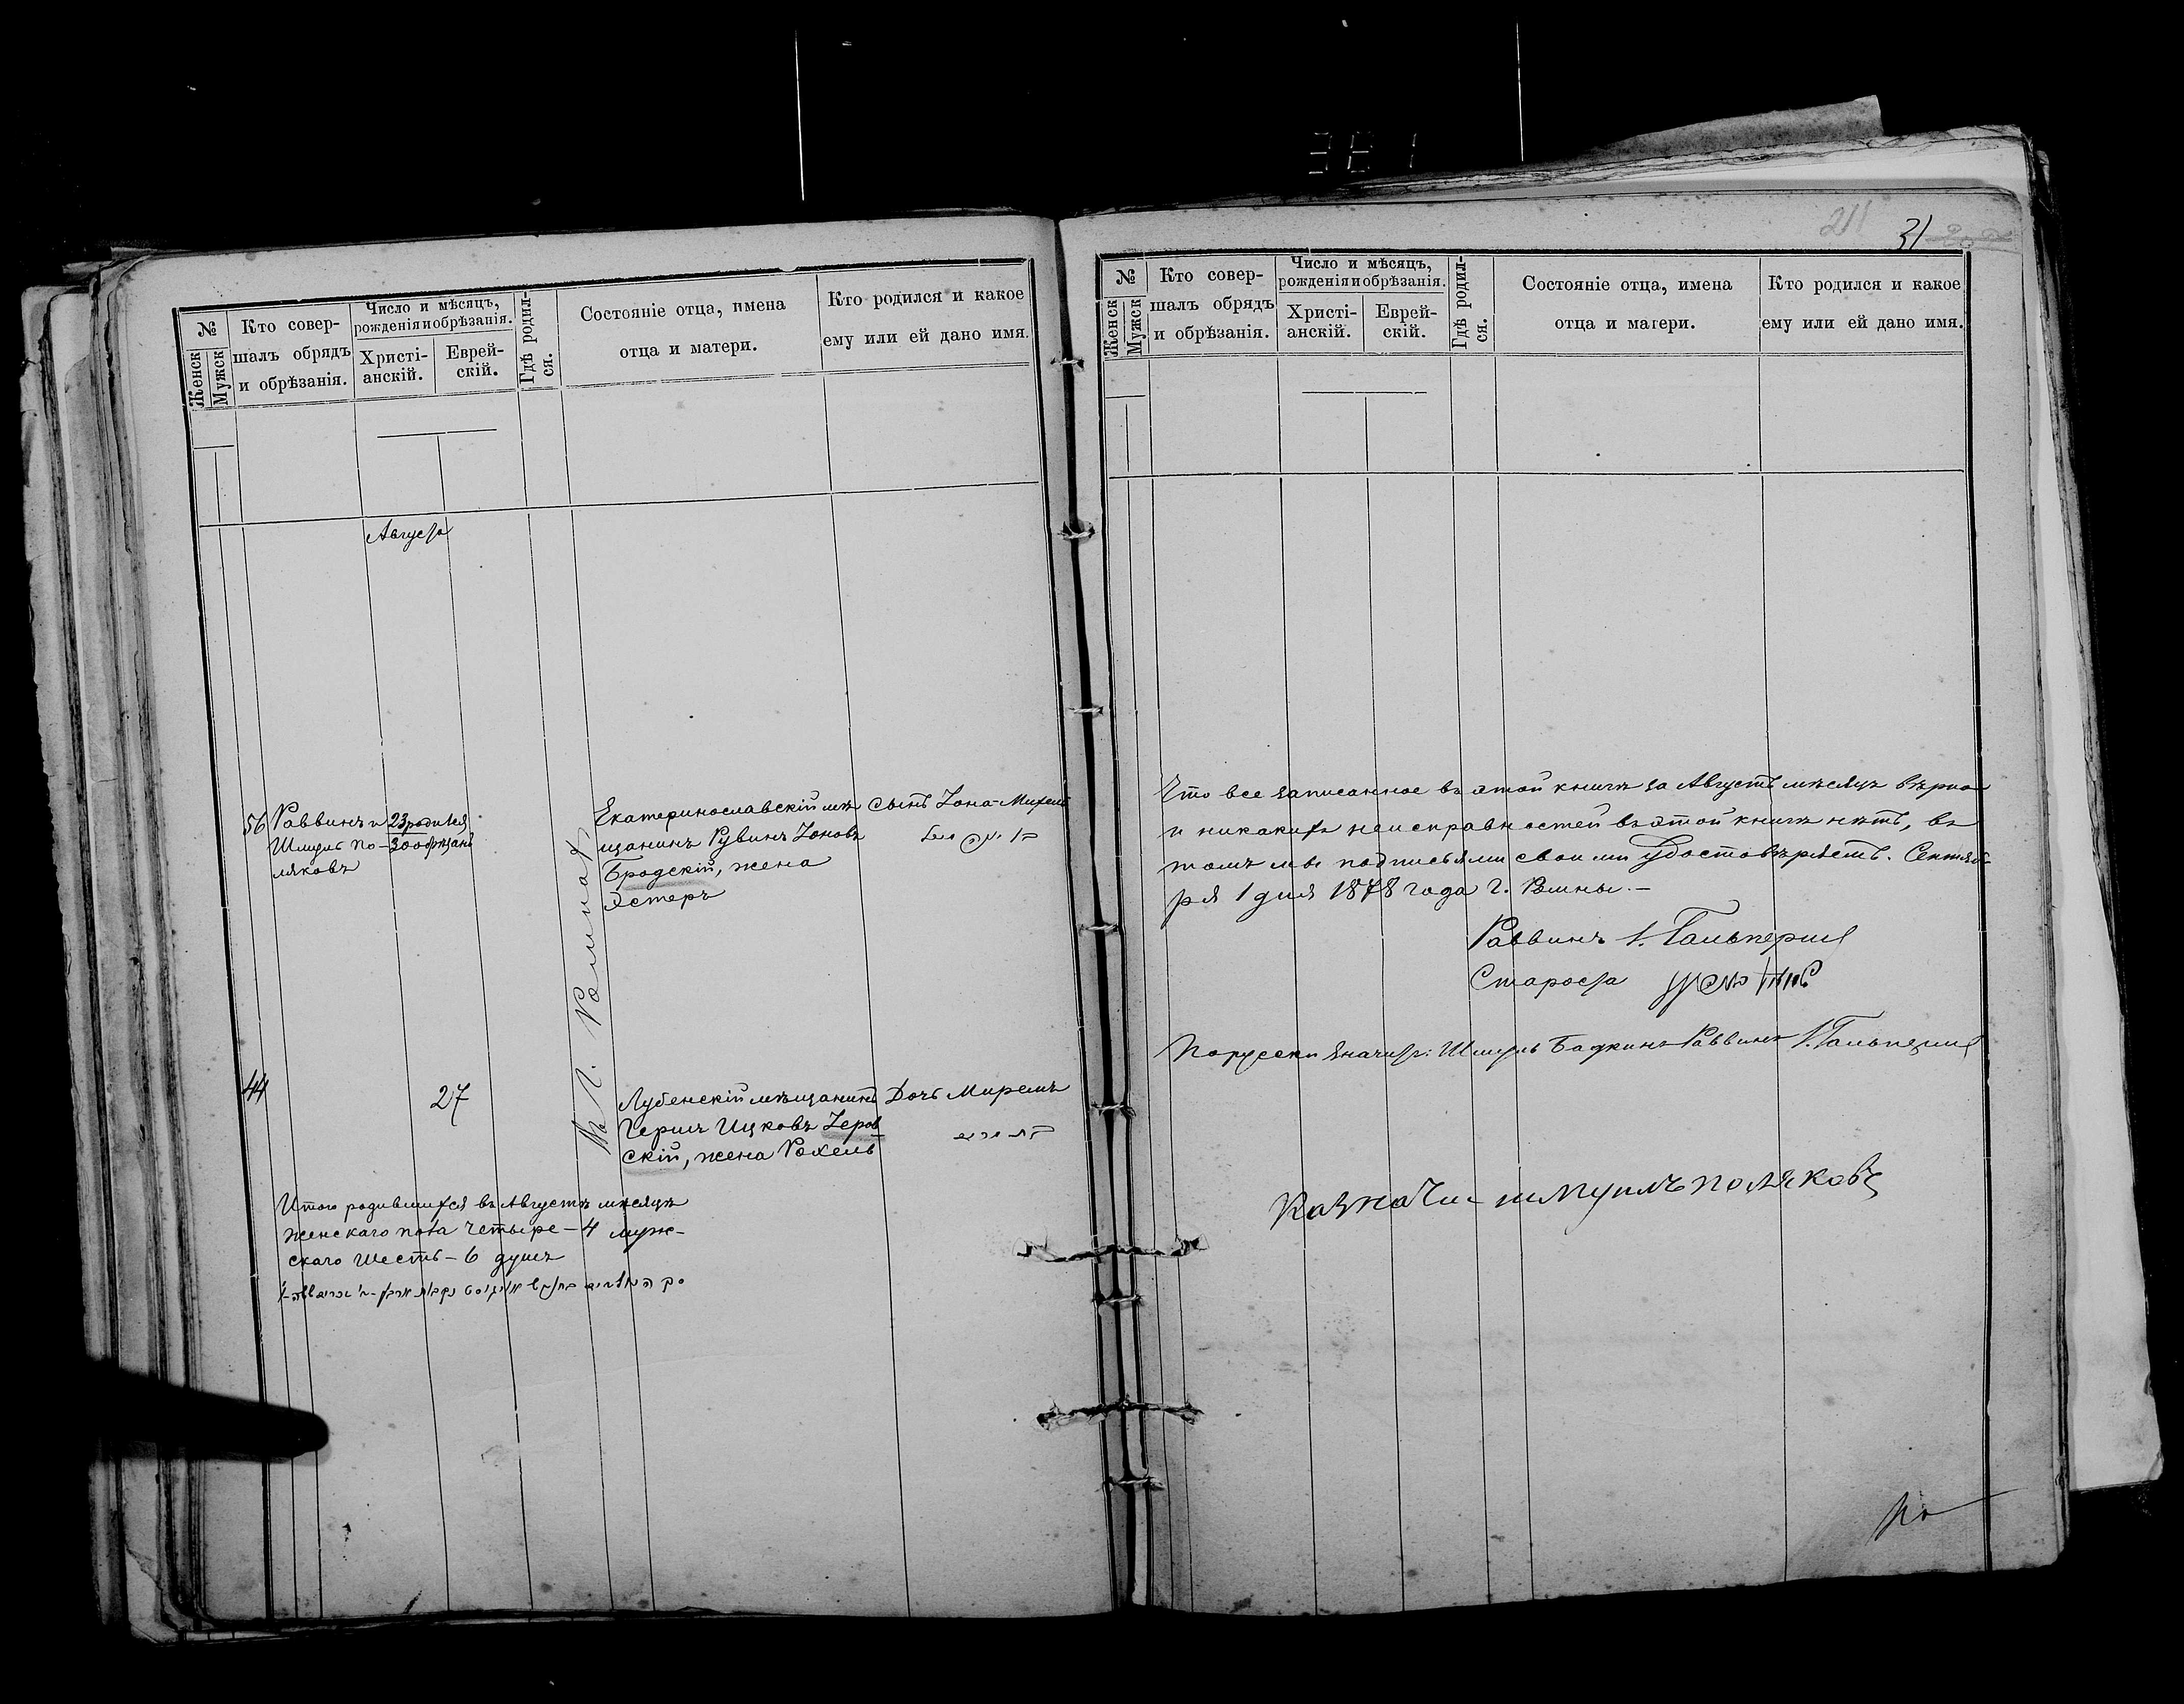 №
Женск
Мужск
Кто совер-
шалъ обрядъ
и обрѣзанія.
Число и мѣсяцъ,
рожденія и обрѣзанія.
Христі-
анскій.
Еврей-
скій.
Гдѣ родил-
ся.
Состояніе отца, имена
отца и матери.
Кто родился и какое
ему или ей дано имя.
Августа
56
Раввинъ и
Шмуль По-
ляковъ
23 родился
30 обрѣзанъ
Екатеринославскій мѣ
щанинъ Рувинъ Іоновъ
Бродскій, жена
Эстеръ
Сынъ Іона-Михель
44
27
Лубенскій мѣщанинъ
Гершъ Ицковъ Зеров
скій, жена Рохель
Дочь Миремъ
Итого родившихся въ Августѣ мѣсяцѣ
женскаго пола четыре - 4 муж-
скаго шесть - 6 душъ
211
31
№
Женск
Мужск
Кто совер-
шалъ обрядъ
и обрѣзанія.
Число и мѣсяцъ,
рожденія и обрѣзанія.
Христі-
анскій.
Еврей-
скій.
Гдѣ родил-
ся.
Состояніе отца, имена
отца и матери.
Кто родился и какое
ему или ей дано имя.
Что все записанное въ этой книгѣ за Августъ мѣсяцъ вѣрно
и никакихъ неисправностей въ этой книгѣ нѣтъ, въ
томъ мы подписьями своими удостовѣряемъ. Сентяб-
ря 1 дня 1878 года г. Ромны.-
Раввинъ І. Гальперинъ
Староста
По русски значитъ: Шмуль Бадкинъ Раввинъ І. Гальперинъ
Казначи шмуилъ поляковъ